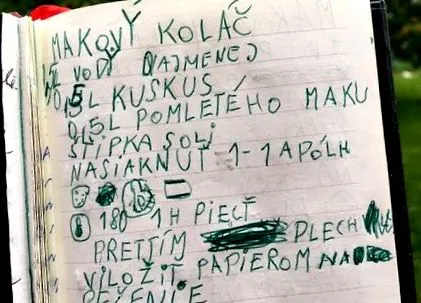 MAKOVÝ KOLÁČ
VODY (NAJMENEJ)
0,5 L KUSKUS
0,5 L POMLETÉHO MAKU
ŠTIPKA SOLI
NASIAKNUŤ 1-1 A PÓL H
180 1H PIECŤ
PRETTÍM PLECH
VILOŽIŤ PAPIEROM NA
PEČENIE